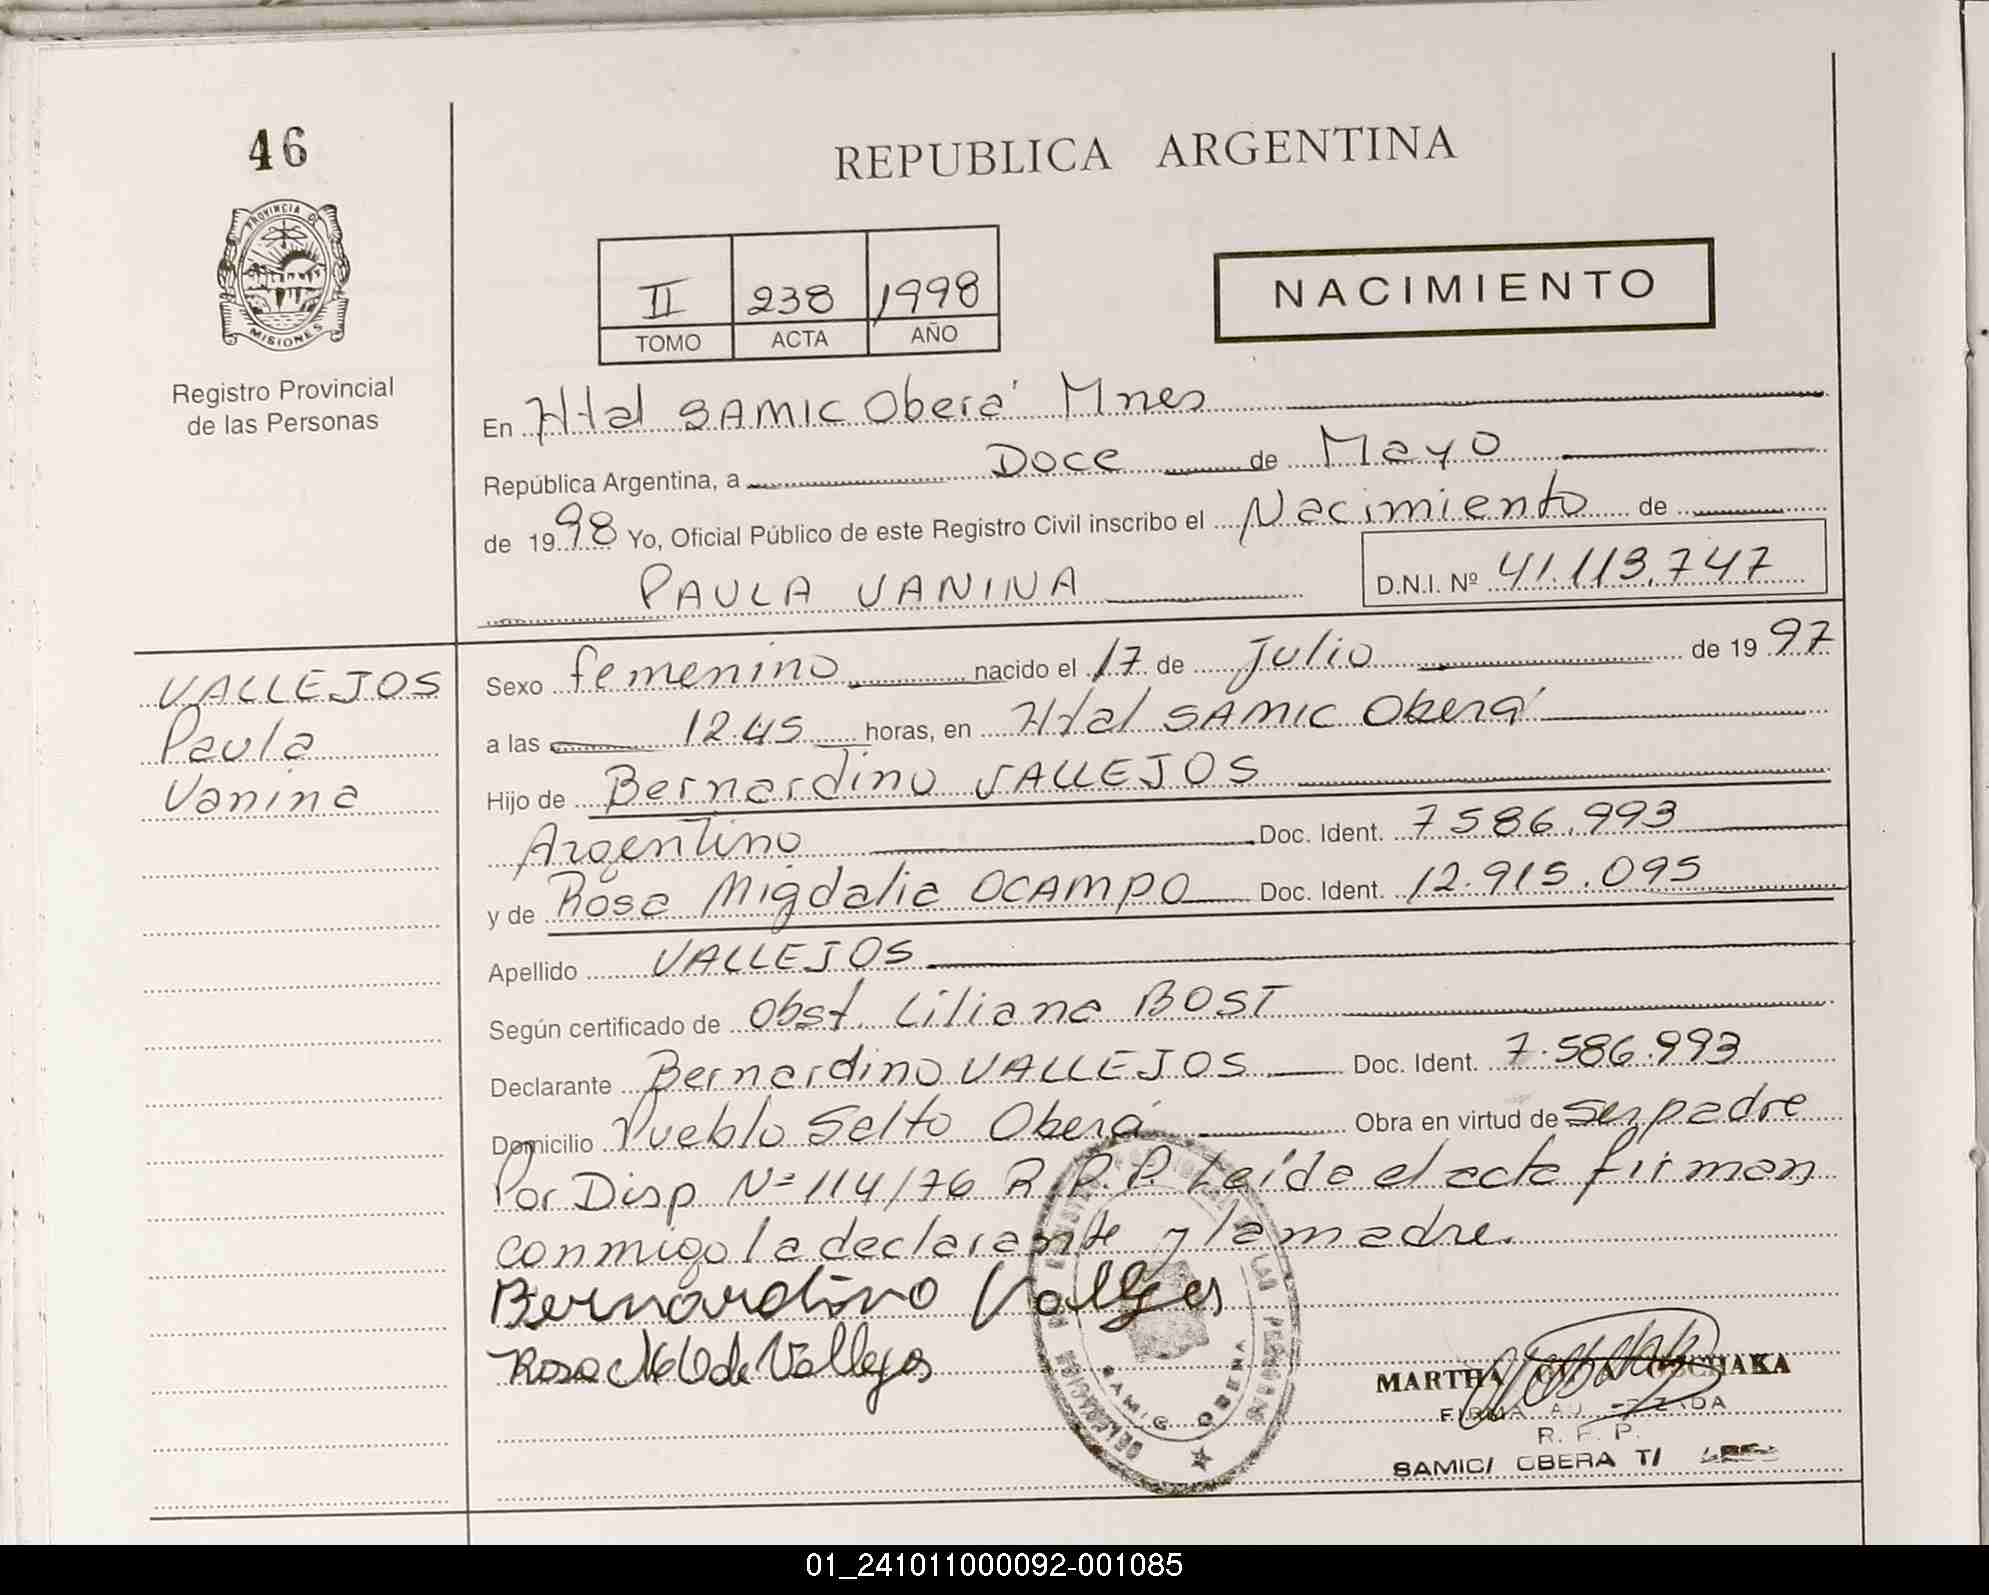 46
REPUBLICA ARGENTINA
PROVINCIA DE
MISIONES
Registro Provincial
de las Personas
II 238 1998
TOMO ACTA AÑO
NACIMIENTO
En Htal SAMIC Oberá Mnes
República Argentina, a Doce de Mayo
de 1998 Yo, Oficial Público de este Registro Civil inscribo el Nacimiento de
PAULA VANINA D.N.I. Nº 41.113.747
VALLEJOS
Paula
Vanina
Sexo femenino nacido el 17 de Julio de 1997
a las 12.45 horas, en Htal SAMIC Oberá
Hijo de Bernardino VALLEJOS
Argentino Doc. Ident. 7586.993
y de Rosa Migdalia OCAMPO Doc. Ident. 12.915.095
Apellido VALLEJOS
Según certificado de Obst. Liliana BOST
Declarante Bernardino VALLEJOS Doc. Ident. 7.586.993
Domicilio Pueblo Salto Oberá Obra en virtud de ser padre
Por Disp Nº 114/76 R.P.P. Leída el acta firman
conmigo la declarante y la madre.
Bernardino Vallejos
Rosa M O de Vallejos
DELEGACION
LAS PERSONAS
SAMIC OBERA
MARTHA
R. P. P.
SAMIC/ OBERA T/
01_241011000092-001085